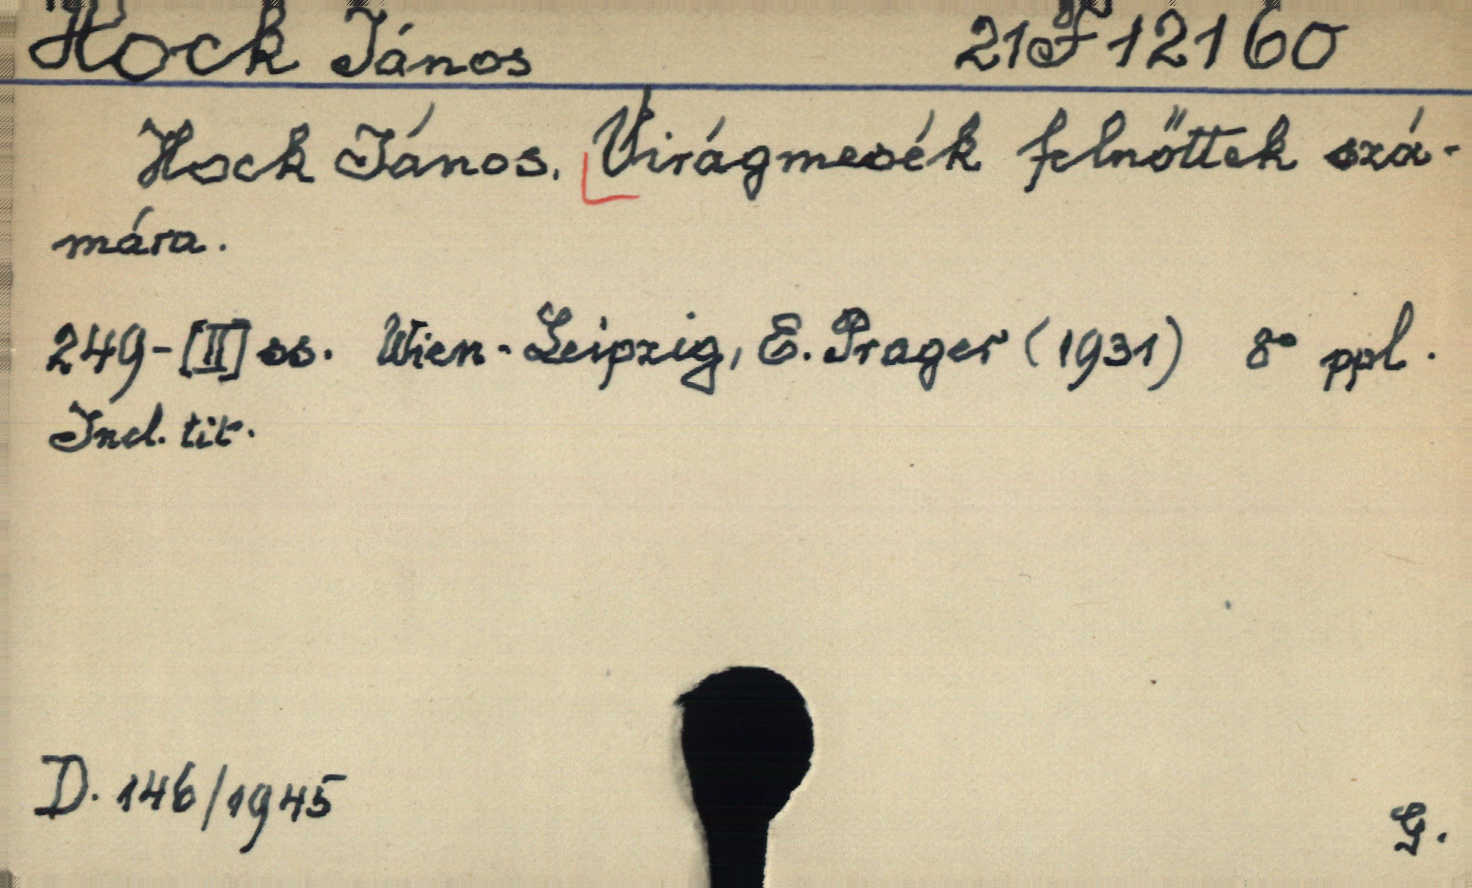 Hock János 21F12160
Hock János, Virágmesék felnőttek szá-
mára.
249-[II] ss. Wien-Leipzig, E. Prager (1931) 8° ppl.
Incl. tit.
D. 146/1945
G.